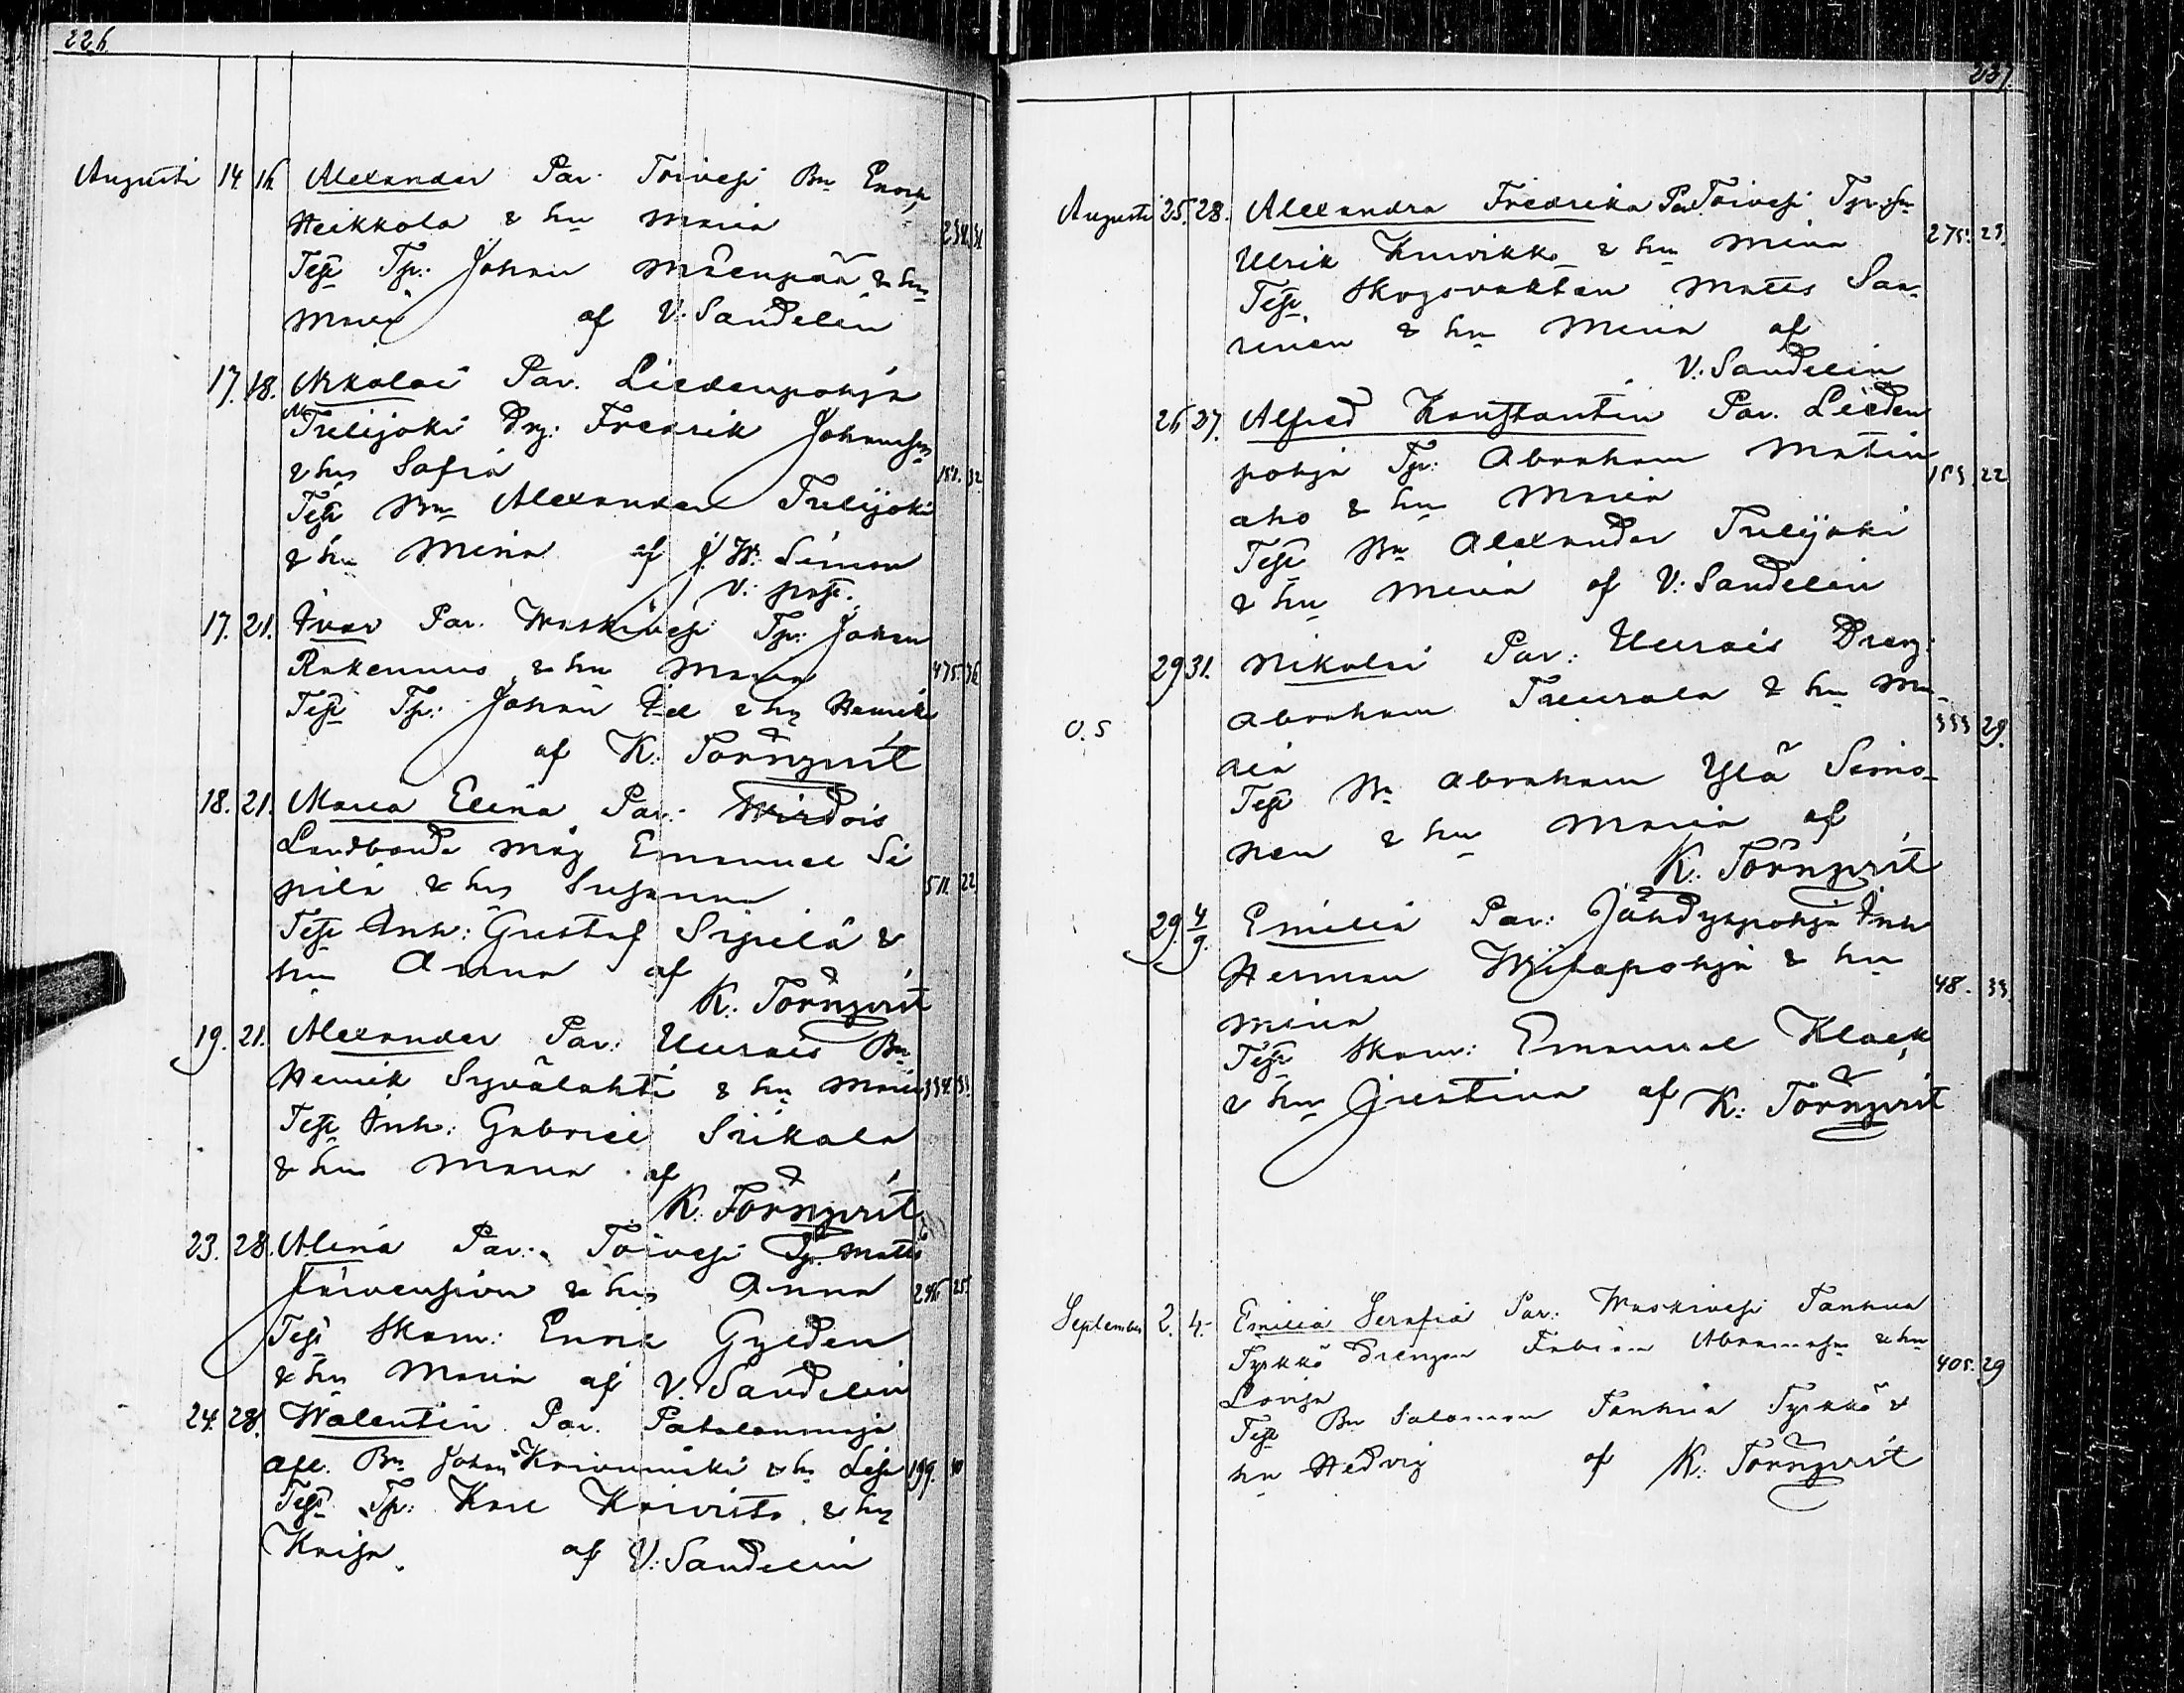 226.
Augusti 14. 16. Alexander Par. Toivesi Bn Enoch
Heikkola & hu Maria 234. 31.
Test Tp: Johan Mäenpää & hu
Maria af V. Sandelin
17. 18. Nikolai Par. Liedenpohja
Trelijoki Drg: Fredrik Johansson
& hu Sofia 32.
Test Bn Alexander Trelijoki
& hu Maria af J. W. Simon
V: past.
17. 21. Ivar Par. Waskivesi Tp: Johan
Rakennus & hu Maria 475. 36.
Test Tp: Johan & hu Henrika
af K. Törnqvist
18. 21. Maria Elina Par. Wirdois
Landbonde måg Emanuel Si
pilä & hu Susanna 511. 22.
Test Inh: Gustaf Sipilä &
hu Anna af
K. Törnqvist
19. 21. Alexander Par: Uurais Bn
Henrik Syvälahti & hu Maria 334. 33.
Test Inh: Gabriel Siikala
& hu Maria af
K. Törnqvist
23. 28. Alina Par: Toivesi Tp. Matts
& hu Anna 246. 25.
Test Skom: Enok Gyldén
& hu Maria af V. Sandelin
24. 28. Walentin Par. Patalanmaja
Afl. Bn Johan Koivumäki & hu Lisa 199. 40
Test Tp: Karl Koivisto & hu
Kaisa. af V. Sandelin
227.
Augusti 25. 28. Alexandra Fredrika Par Toivesi Tp:sn
Ulrik Kuivikko & hu Mina 275. 23.
Test Skogsvakten Matts Saa-
rinen & hu Maria af
V. Sandelin
26 27. Alfred Konstantin Par. Lieden
pohja Tp: Abraham Matin
aho & hu Maria 153 22
Test Bn Alexander Trelijoki
& hu Maria af V. Sandelin
29. 31. Nikolai Par: Uurais Dreng:
Abraham & hu Ma- 333 29.
O. S
ria
Test Bn Abraham Ylä Simo-
nen & hu Maria af
K. Törnqvist
29. 4/9. Emilia Par: Jähdyspohja Inh
Herman Wiitapohja & hu 48. 33.
Mina
Test Skom: Emanuel Klock
& hu Justina af K. Törnqvist
September 2. 4. Emilia Serafia Par: Waskivesi Tanhua
Tyrkkö Drengen Fabian Abramsson & hu 405. 29
Lovisa
Test Bn Salomon Tanhua Tyrkkö &
hu Hedvig af K. Törnqvist